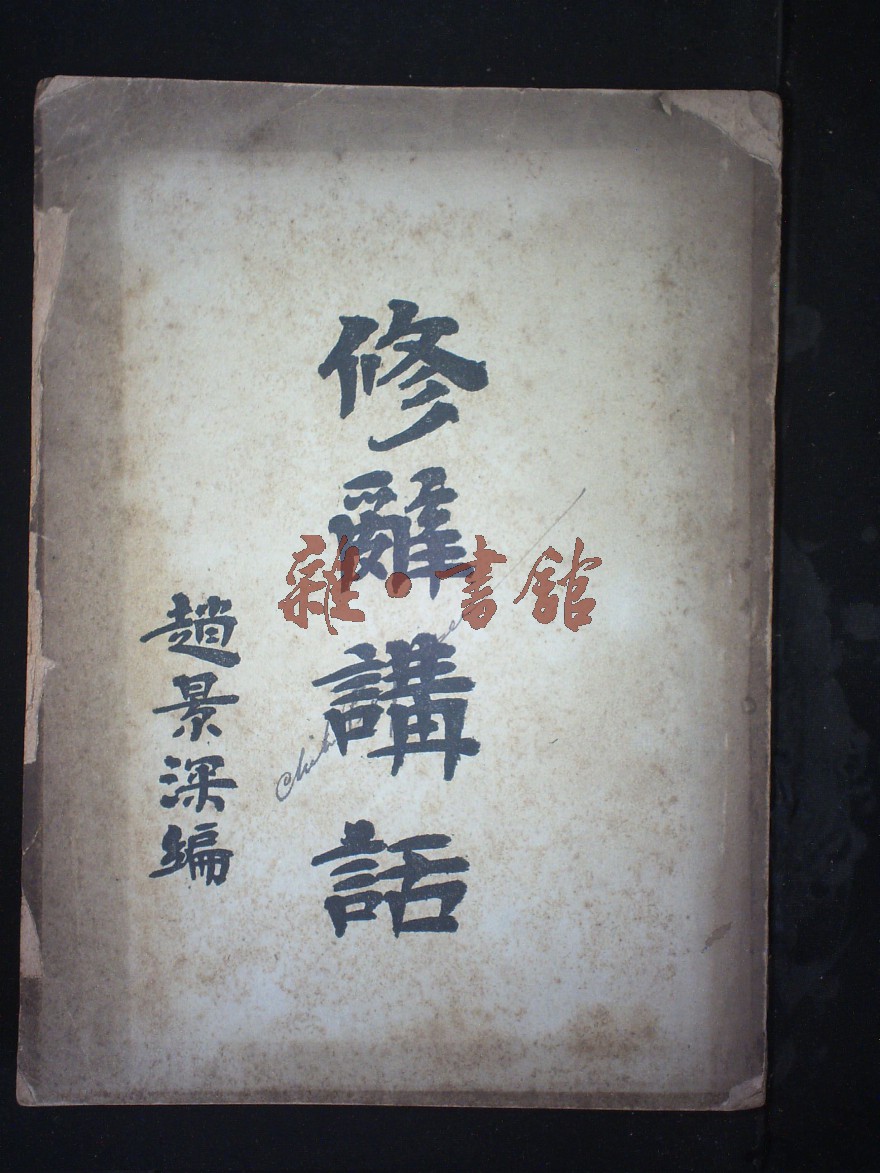 修辭講話
趙景深編
雜·書館